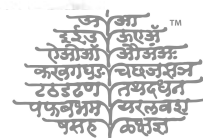 अ आ TM
इ ई उ ऊ ए अॅ
ऐ ओ औ ऑ अं अः
क ख ग घ ङ च छ ज झ ञ
ट ठ ड ढ ण त थ द ध न
प फ ब भ म य र ल व श
ष स ह ळ क्ष ज्ञ